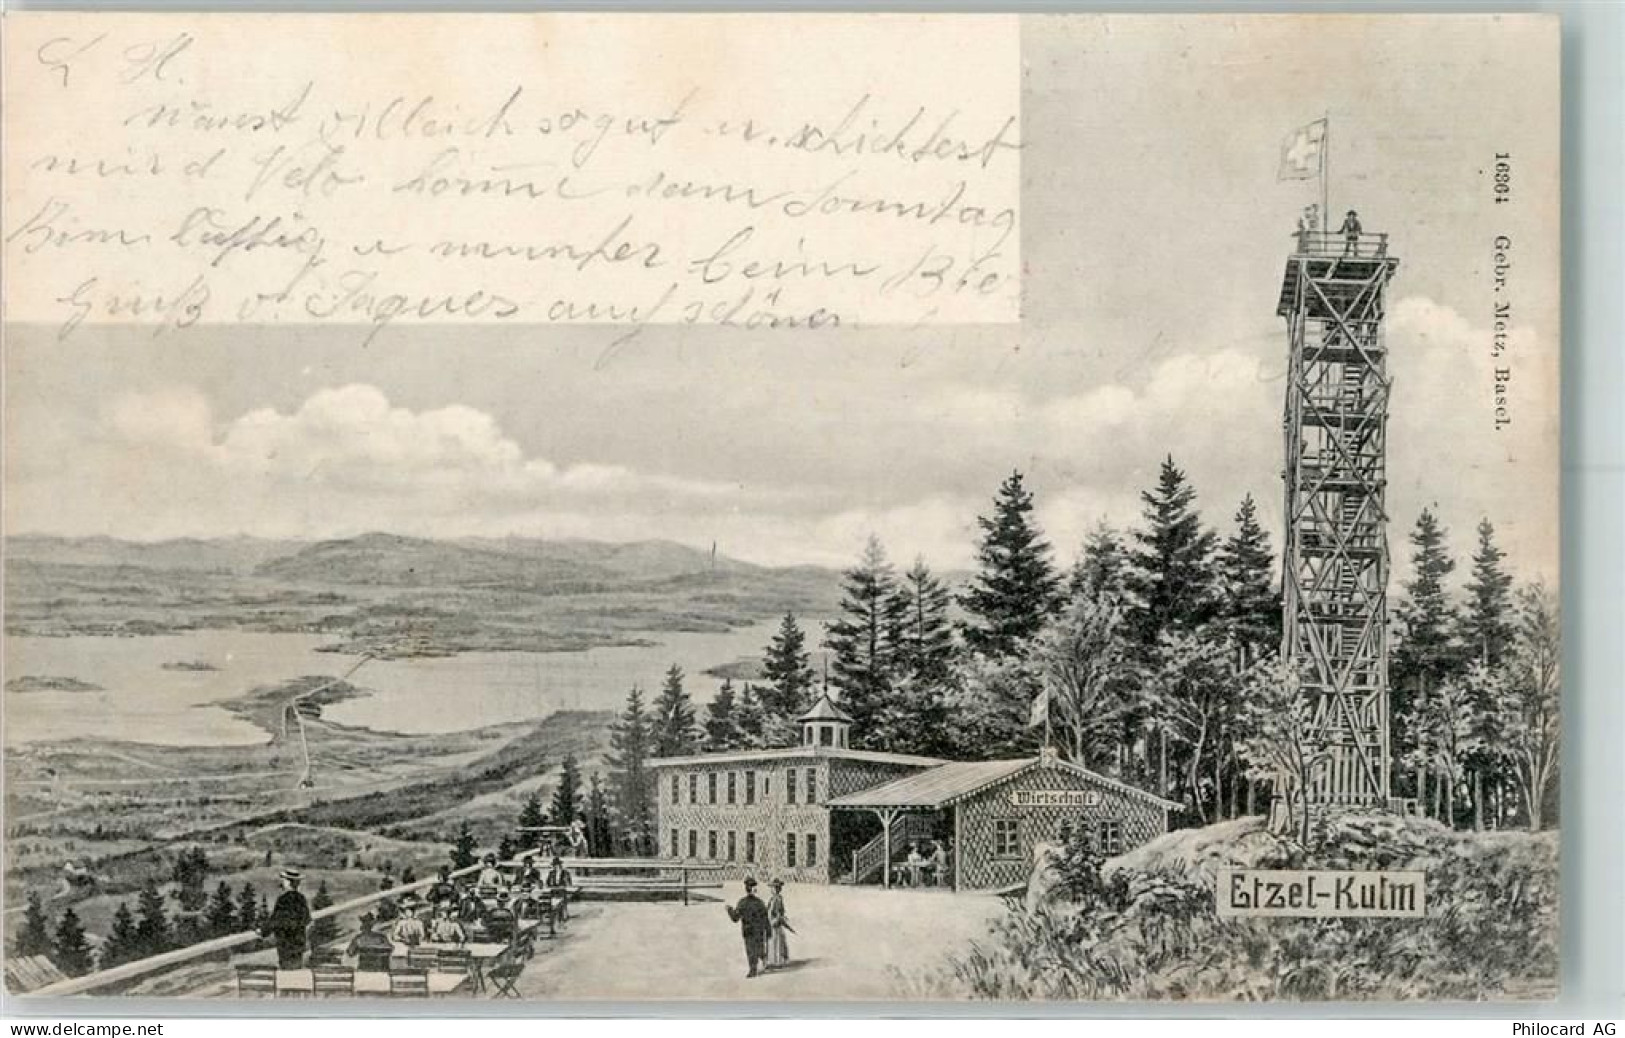 L H.
wärest villeich so gut u. schicktest
mir d Velo komme dann Sonntag
Bin lustig u munter beim Bie
Gruß v. Jaques auch schönen
16364 Gebr. Metz, Basel.
Wirtschaft
Etzel-Kulm
www.delcampe.net
Philocard AG